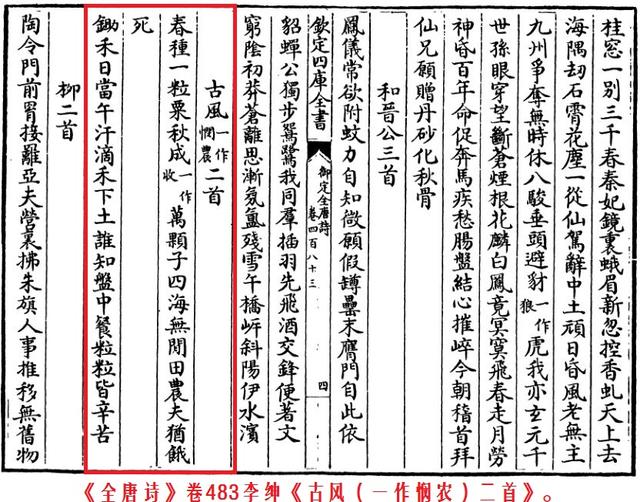 桂窓一别三千春秦妃鏡裏蛾眉新忽控香虬天上去
海隅劫石霄花塵一從仙駕辭中土頑日昏風老無主
九州爭奪無時休八駿垂頭避豺一作狼虎我亦玄元千
世孫眼穿望斷蒼煙根花麟白鳳竟冥寞飛春走月勞
神昏百年命促奔馬疾愁腸盤結心摧崪今朝稽首拜
仙兄願贈丹砂化秋骨
和晉公三首
鳳儀常欲附蚊力自知微願假罇罍末膺門自此依
欽定四庫全書 御定全唐詩 卷四百八十三 四
貂蟬公獨步鴛鷺我同羣插羽先飛酒交鋒便著文
窮陰初莽蒼離思漸氛氳殘雪午橋岍斜陽伊水濱
古風一作憫農二首
春種一粒粟秋成一作收萬顆子四海無閒田農夫猶餓
死
鋤禾日當午汗滴禾下土誰知盤中餐粒粒皆辛苦
柳二首
陶令門前罥接䍦亞夫營裏拂朱旗人事推移無舊物
《全唐诗》卷483李绅《古风（一作悯农）二首》。